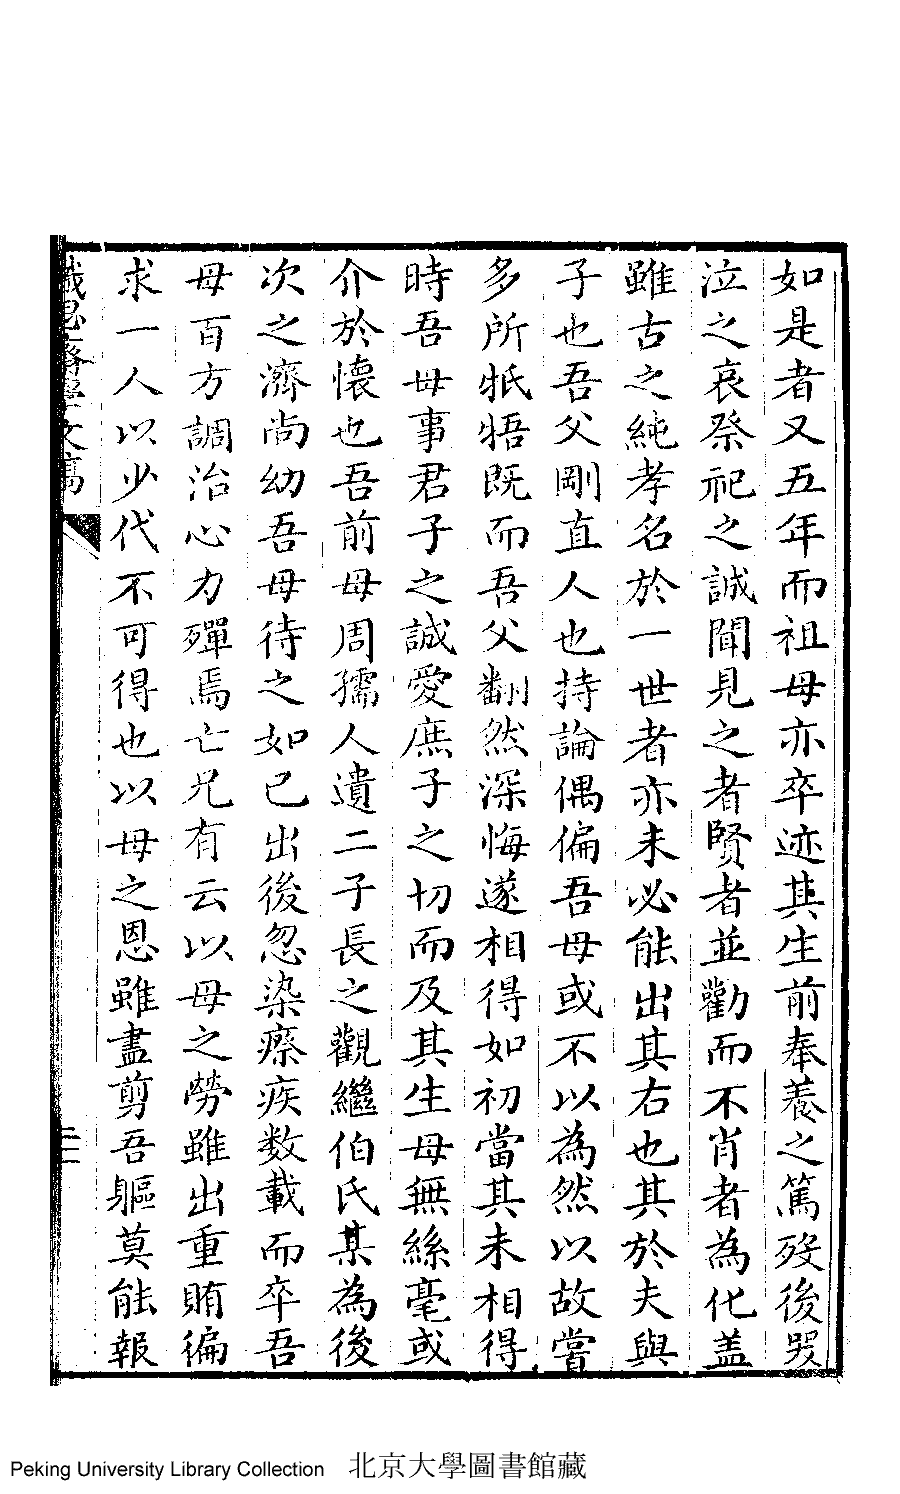 如是者又五年而祖母亦卒迹其生前奉養之篤歿後哭
泣之哀祭祀之誠聞見之者賢者並勸而不肖者為化盖
雖古之純孝名於一世者亦未必能出其右也其於夫與
子也吾父剛直人也持論偶偏吾母或不以為然以故嘗
多所牴牾既而吾父翻然深悔遂相得如初當其未相得
時吾母事君子之誠愛庶子之切而及其生母無絲毫或
介於懷也吾前母周孺人遺二子長之觀繼伯氏某為後
次之濟尚幼吾母待之如已出後忽染瘵疾数載而卒吾
母百方調治心力殫焉亡兄有云以母之勞雖出重賄徧
求一人以少代不可得也以母之恩雖盡剪吾軀莫能報
誠思齋文稿
二
Peking University Library Collection 北京大學圖書館藏